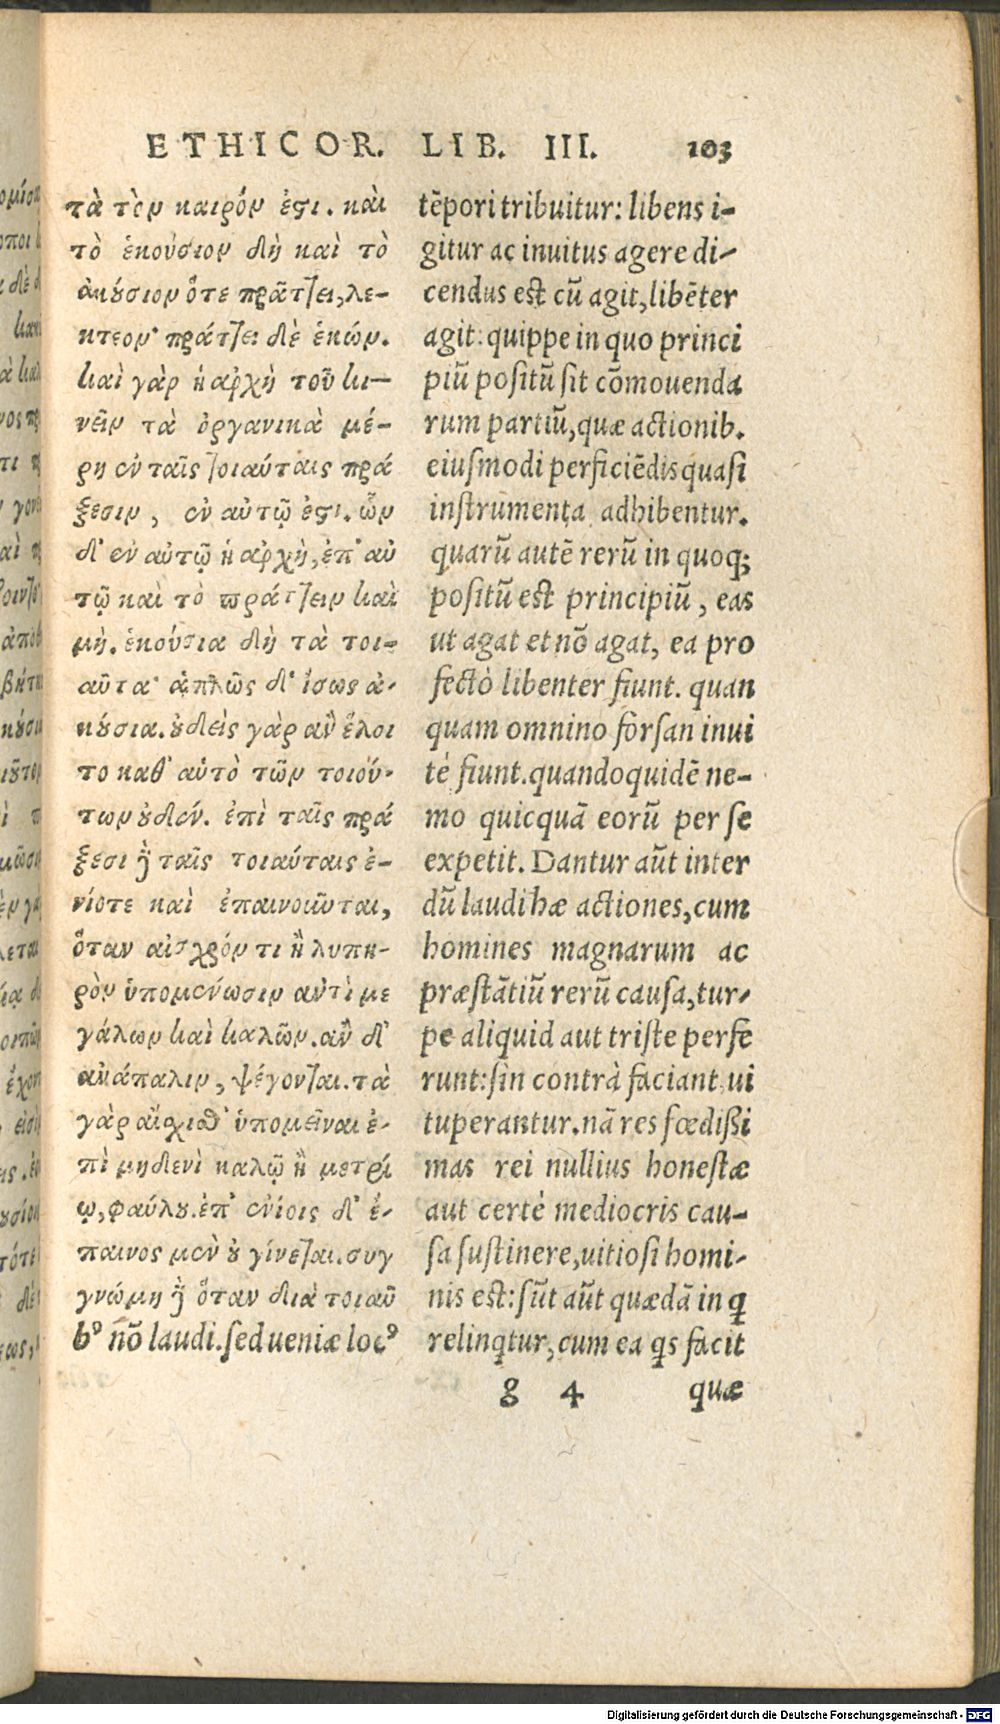 ETHICOR. LIB. III. 103
τὰ τὸν καιρόν ἐστι. καὶ
τὸ ἑκούσιον δὴ καὶ τὸ
ἀκούσιον ὅτε πράττει, λε-
κτεον· πράττει δὲ ἑκών.
καὶ γὰρ ἡ ἀρχὴ τοῦ κι-
νεῖν τὰ ὀργανικὰ μέ-
ρη ἐν ταῖς τοιαύταις πρά
ξεσιν, ἐν αὐτῷ ἐστι. ὧν
δ' ἐν αὐτῷ ἡ ἀρχὴ, ἐπ' αὐ
τῷ καὶ τὸ πράττειν καὶ
μὴ. ἑκούσια δὴ τὰ τοι-
αῦτα· ἁπλῶς δ' ἴσως ἀ-
κούσια. οὐδεὶς γὰρ ἂν ἕλοι
το καθ' αὑτὸ τῶν τοιού-
των οὐδέν. ἐπὶ ταῖς πρά
ξεσι δὲ ταῖς τοιαύταις ἐ-
νίοτε καὶ ἐπαινοῦνται,
ὅταν αἰσχρόν τι ἢ λυπη-
ρὸν ὑπομένωσιν αὐτὶ με
γάλων καὶ καλῶν. ἂν δ'
ἀνάπαλιν, ψέγονται. τὰ
γὰρ αἴσχισθ' ὑπομεῖναι ἐ-
πὶ μηδενὶ καλῷ ἢ μετρί
ῳ, φαύλου. ἐπ' ἐνίοις δ' ἔ-
παινος μὲν οὐ γίνεται. συγ
γνώμη δὲ ὅταν διὰ τοιαῦ
bꝰ nō laudi. sed ueniæ locꝰ
tēpori tribuitur: libens i-
gitur ac inuitus agere di-
cendus est cū agit, libēter
agit: quippe in quo princi
piū positū sit cōmouenda
rum partiū, quæ actionib.
eiusmodi perficiēdis quasi
instrumenta adhibentur.
quarū autē rerū in quoq;
positū est principiū, eas
ut agat et nō agat, ea pro
fectò libenter fiunt. quan
quam omnino forsan inui
tè fiunt. quandoquidē ne-
mo quicquā eorū per se
expetit. Dantur aūt inter
dū laudi hæ actiones, cum
homines magnarum ac
præstātiū rerū causa, tur-
pe aliquid aut triste perfe
runt: sin contrà faciant, ui
tuperantur. nā res fœdissi
mas rei nullius honestæ
aut certè mediocris cau-
sa sustinere, uitiosi homi-
nis est: sūt aūt quædā in ꝗ
relinꝗtur, cum ea ꝗs facit
g 4 quæ
Digitalisierung gefördert durch die Deutsche Forschungsgemeinschaft - DFG